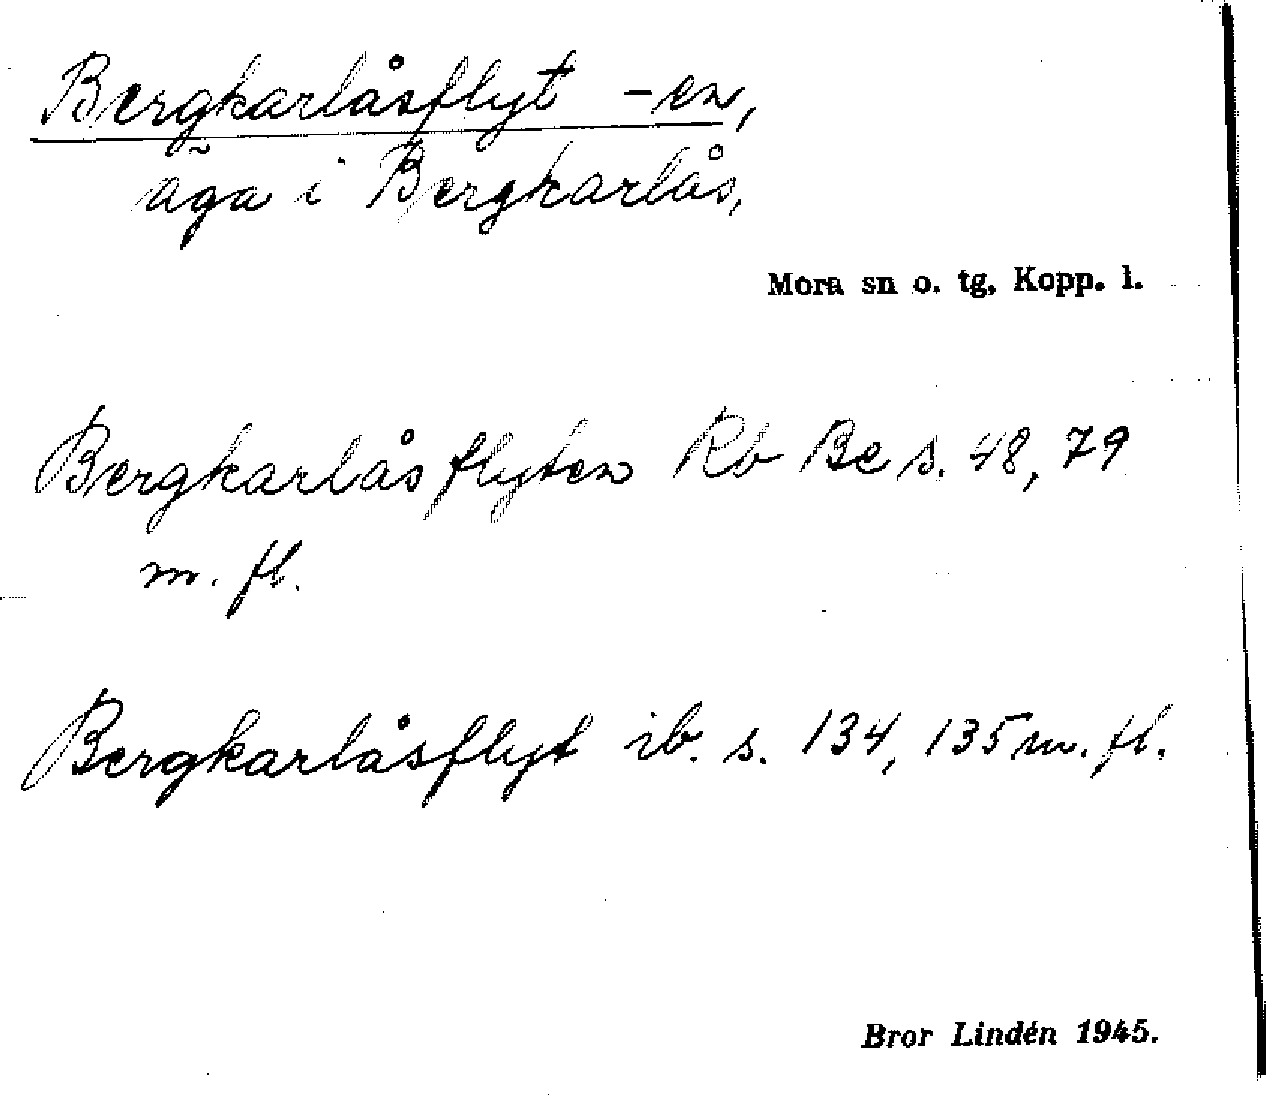 Bergkarlåsflyt -en,
äga i Bergkarlås,
Mora sn o. tg, Kopp. l.
Bergkarlåsflyten Rb Be s. 48, 79
m. fl.
Bergkarlåsflyt ib. s. 134, 135 m. fl.
Bror Lindén 1945.